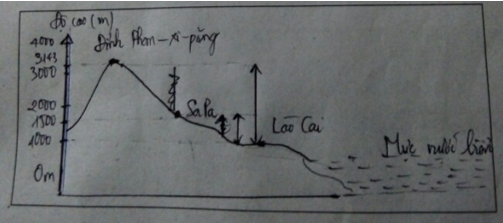 Độ cao (m)
Đỉnh Phan-xi-păng
4000
3143
3000
2000
1500
1000
0m
SaPa
Lào Cai
Mực nước biển